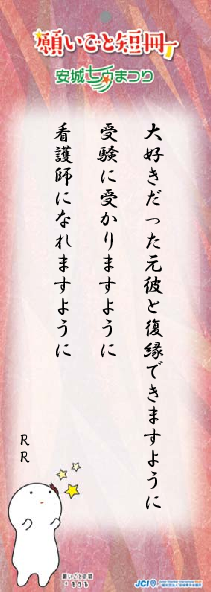 願いごと短冊
安城七夕まつり
大好きだった元彼と復縁できますように
受験に受かりますように
看護師になれますように
RR
JCI